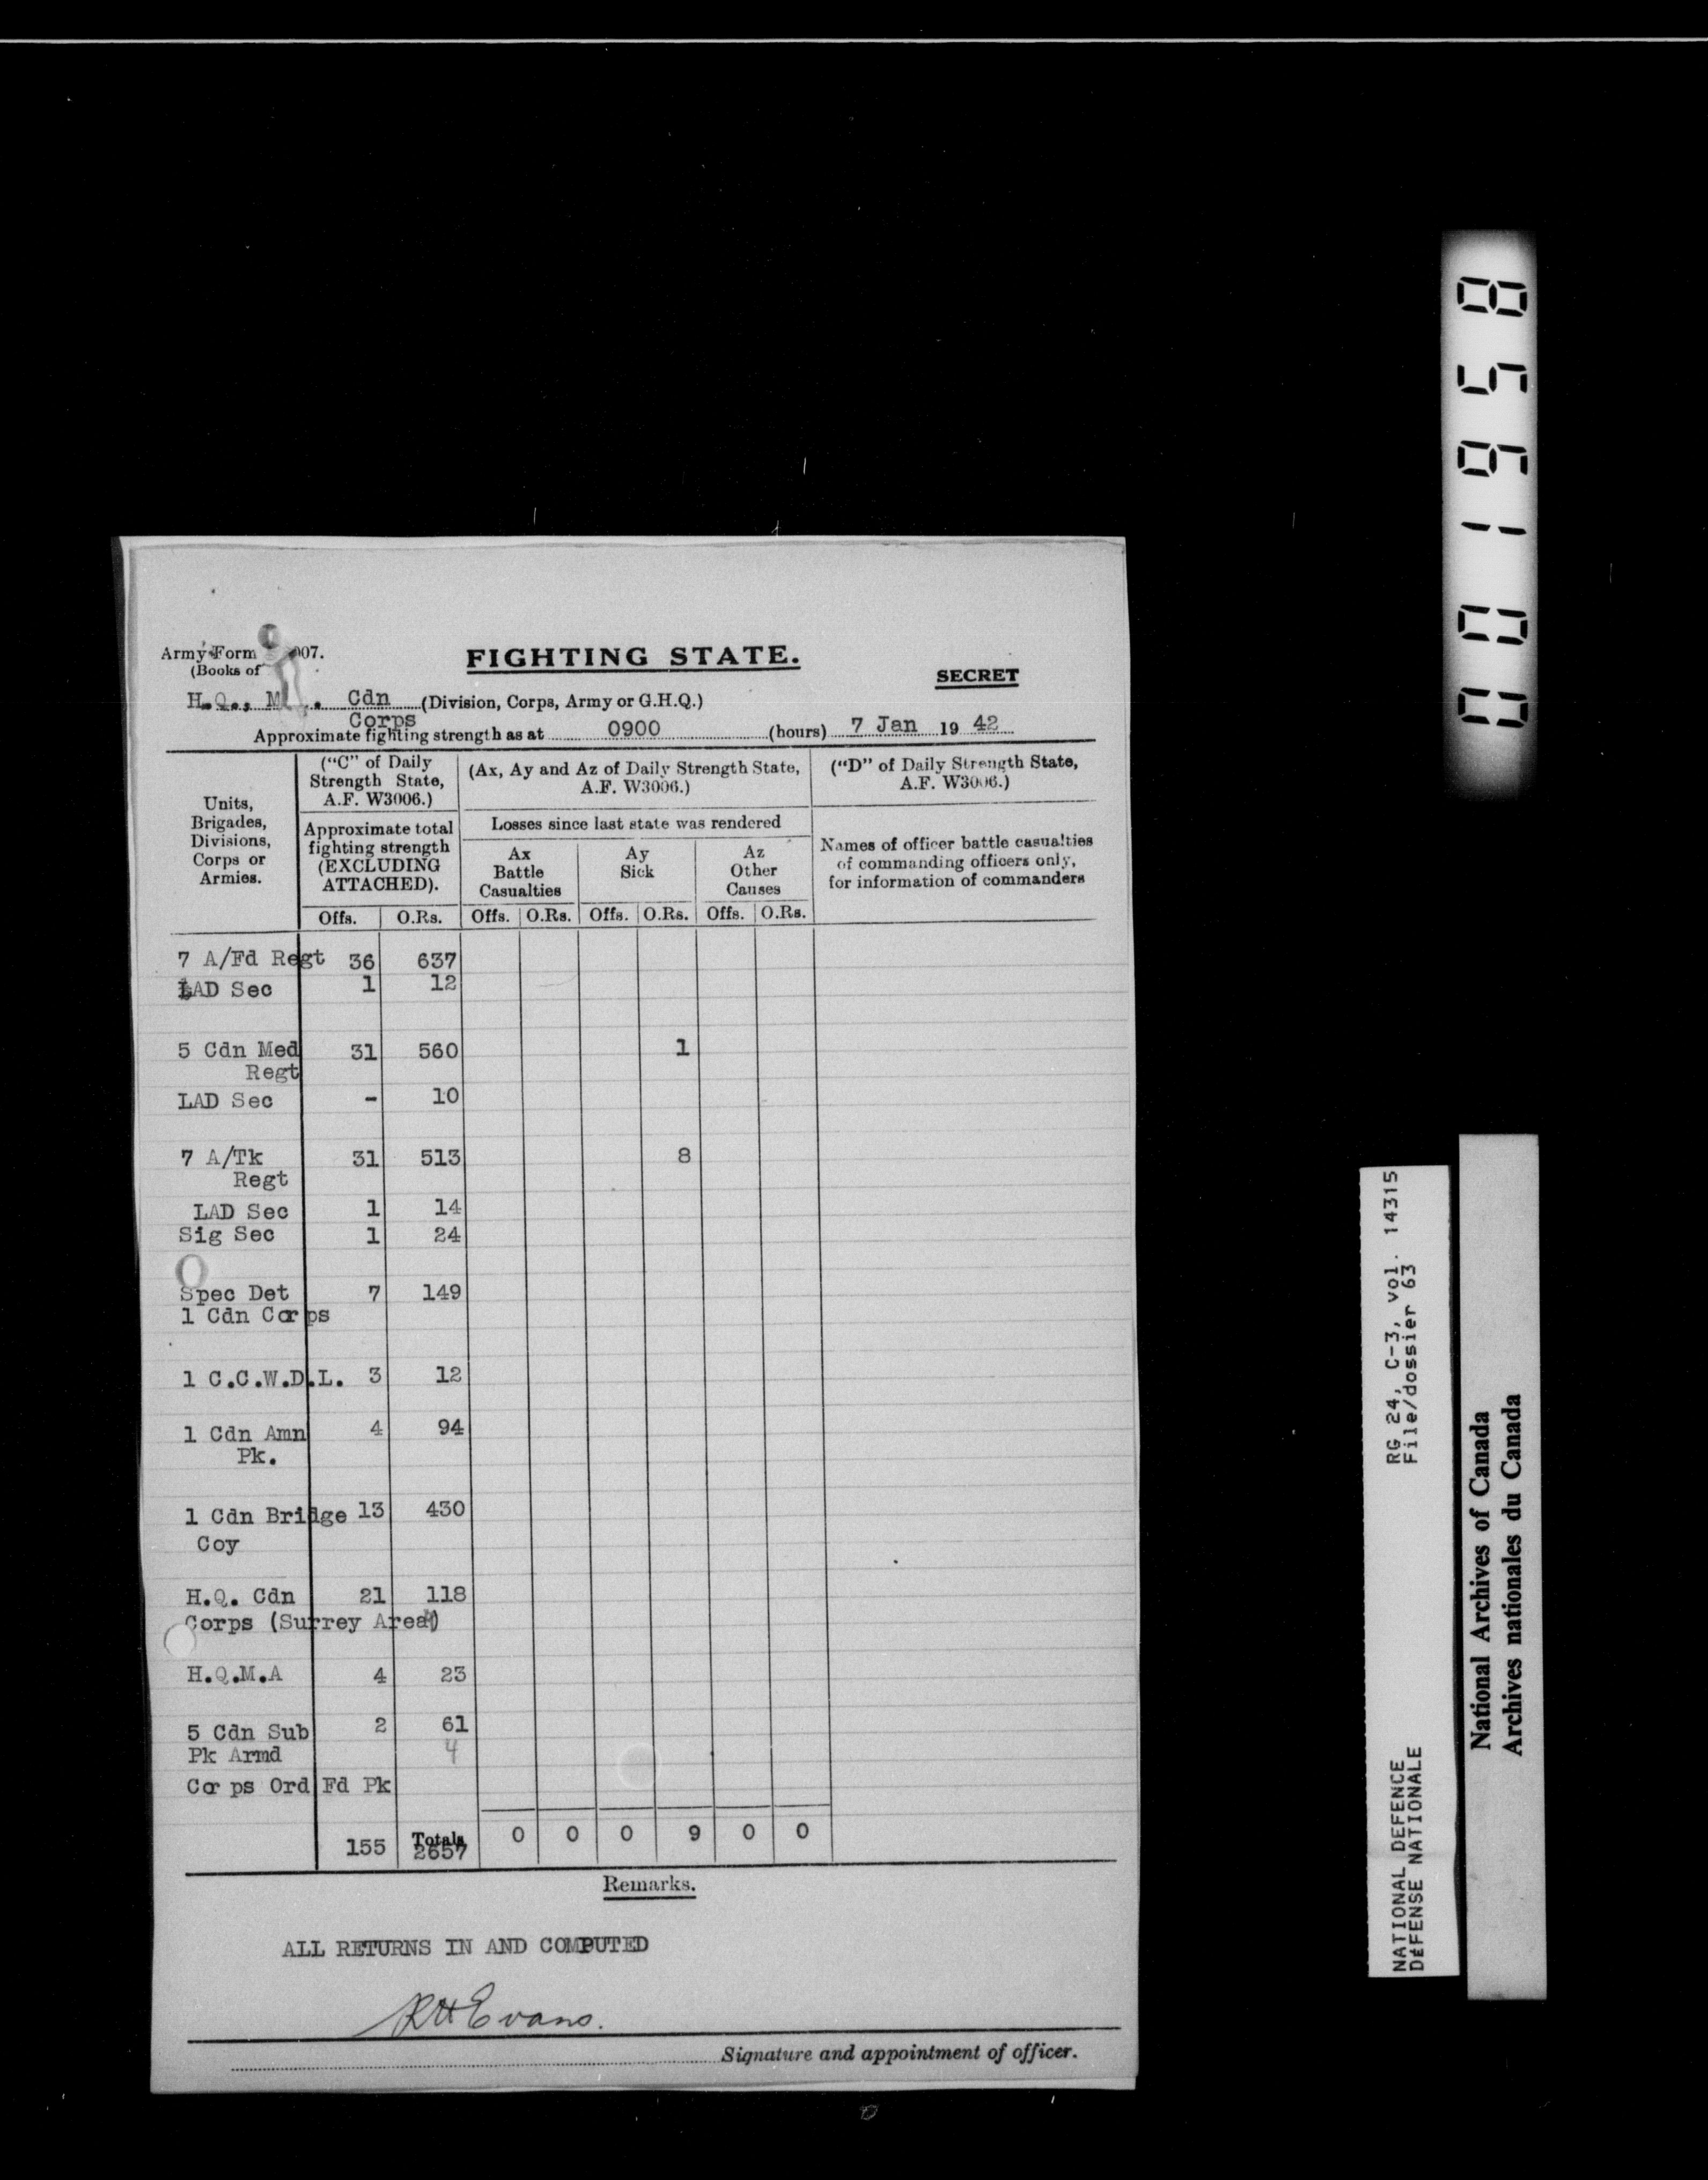 Army Form 007.
(Books of
FIGHTING STATE.
SECRET
H.Q., M . Cdn (Division, Corps, Army or G.H.Q.)
Corps
Approximate fighting strength as at 0900 (hours) 7 Jan 19 42
Units, Brigades, Divisions, Corps or Armies.
("C" of Daily Strength State, A.F. W3006.)
(Ax, Ay and Az of Daily Strength State, A.F. W3006.)
("D" of Daily Strength State, A.F. W3006.)
Approximate total fighting strength (EXCLUDING ATTACHED).
Losses since last state was rendered
Names of officer battle casualties of commanding officers only, for information of commanders
Ax Battle Casualties
Ay Sick
Az Other Causes
Offs. O.Rs. Offs. O.Rs. Offs. O.Rs. Offs. O.Rs.
7 A/Fd Regt 36 637
LAD Sec 1 12
5 Cdn Med 31 560 1
Regt
LAD Sec - 10
7 A/Tk 31 513 8
Regt
LAD Sec 1 14
Sig Sec 1 24
Spec Det 7 149
1 Cdn Corps
1 C.C.W.D.L. 3 12
1 Cdn Amn 4 94
Pk.
1 Cdn Bridge 13 430
Coy
H.Q. Cdn 21 118
Corps (Surrey Area)
H.Q.M.A 4 23
5 Cdn Sub 2 61
Pk Armd 4
Corps Ord Fd Pk
Totals
155 2657 0 0 0 9 0 0
Remarks.
ALL RETURNS IN AND COMPUTED
RHEvans.
Signature and appointment of officer.
001958
NATIONAL DEFENCE RG 24, C-3, vol. 14315
DÉFENSE NATIONALE File/dossier 63
National Archives of Canada
Archives nationales du Canada